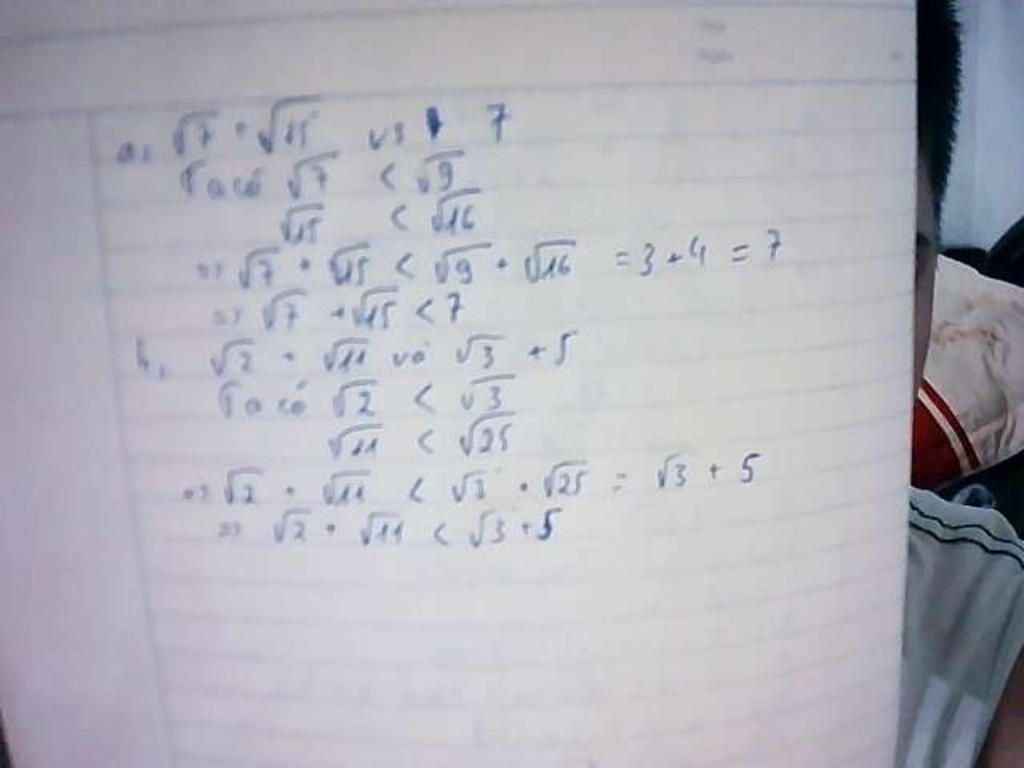 a, √7 + √15 và 7
Ta có √7 < √9
√15 < √16
=> √7 + √15 < √9 + √16 = 3 + 4 = 7
=> √7 + √15 < 7
b, √2 + √11 và √3 + 5
Ta có √2 < √3
√11 < √25
=> √2 + √11 < √3 + √25 = √3 + 5
=> √2 + √11 < √3 + 5